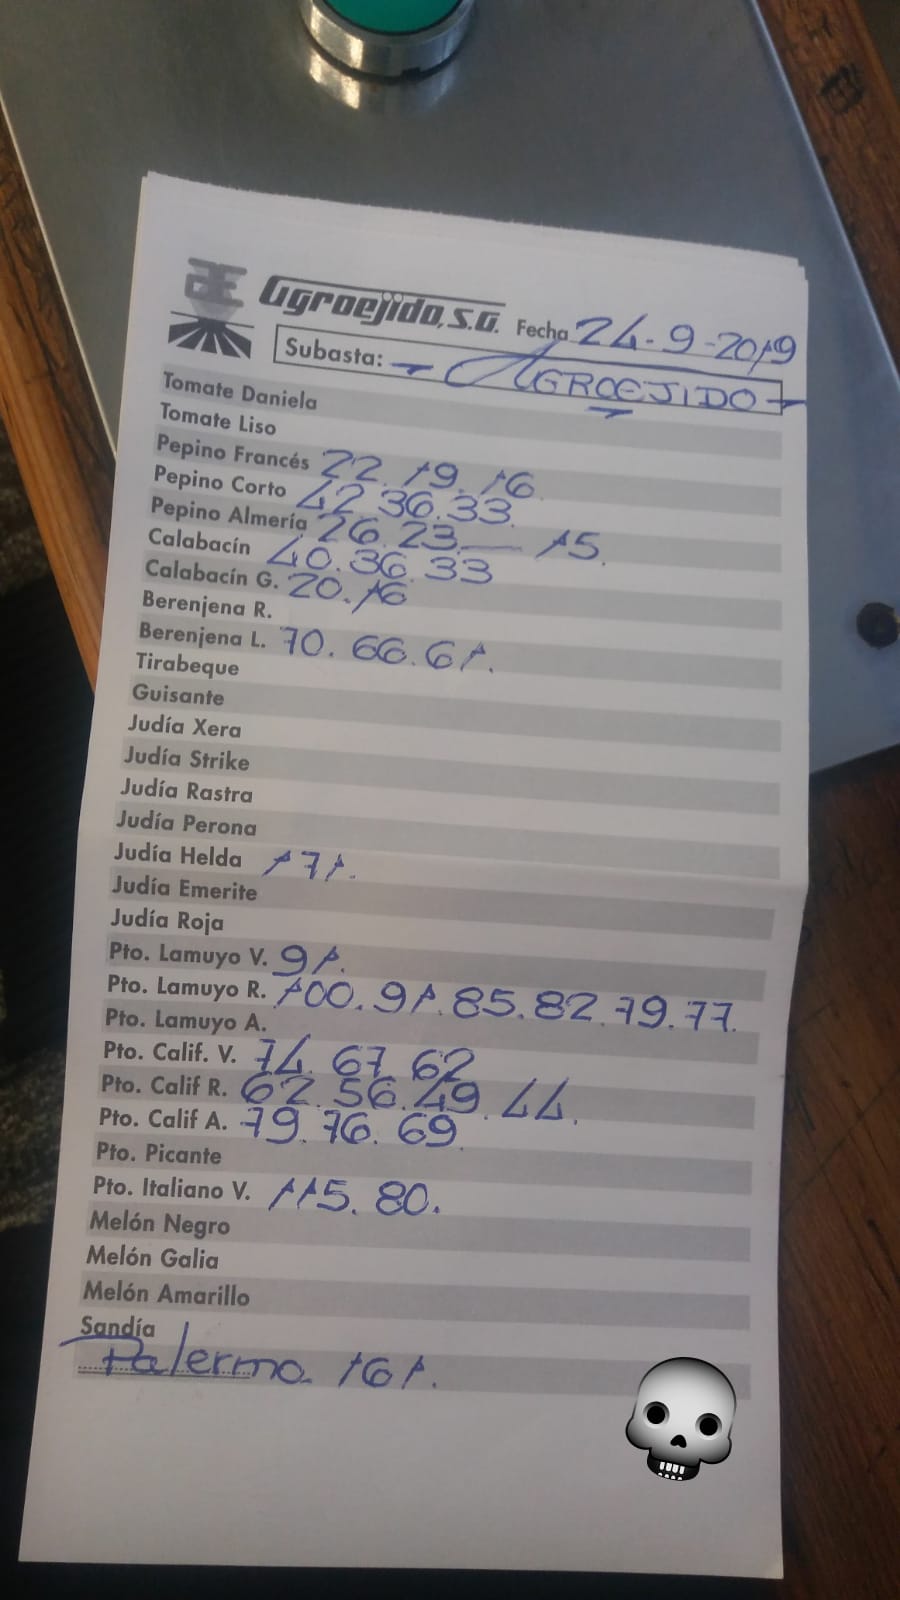 Agroejido, S.A. Fecha 24-9-2019
Subasta: - AGROEJIDO -
Tomate Daniela
Tomate Liso
Pepino Francés 22. 19. 16.
Pepino Corto 42. 36. 33.
Pepino Almería 26. 23. — 15.
Calabacín 40. 36. 33
Calabacín G. 20. 16
Berenjena R.
Berenjena L. 70. 66. 61.
Tirabeque
Guisante
Judía Xera
Judía Strike
Judía Rastra
Judía Perona
Judía Helda 171.
Judía Emerite
Judía Roja
Pto. Lamuyo V. 91.
Pto. Lamuyo R. 100. 91. 85. 82. 79. 77.
Pto. Lamuyo A.
Pto. Calif. V. 74. 67. 62
Pto. Calif R. 62. 56. 49. 44.
Pto. Calif A. 79. 76. 69.
Pto. Picante
Pto. Italiano V. 115. 80.
Melón Negro
Melón Galia
Melón Amarillo
Sandía
Palermo. 161.